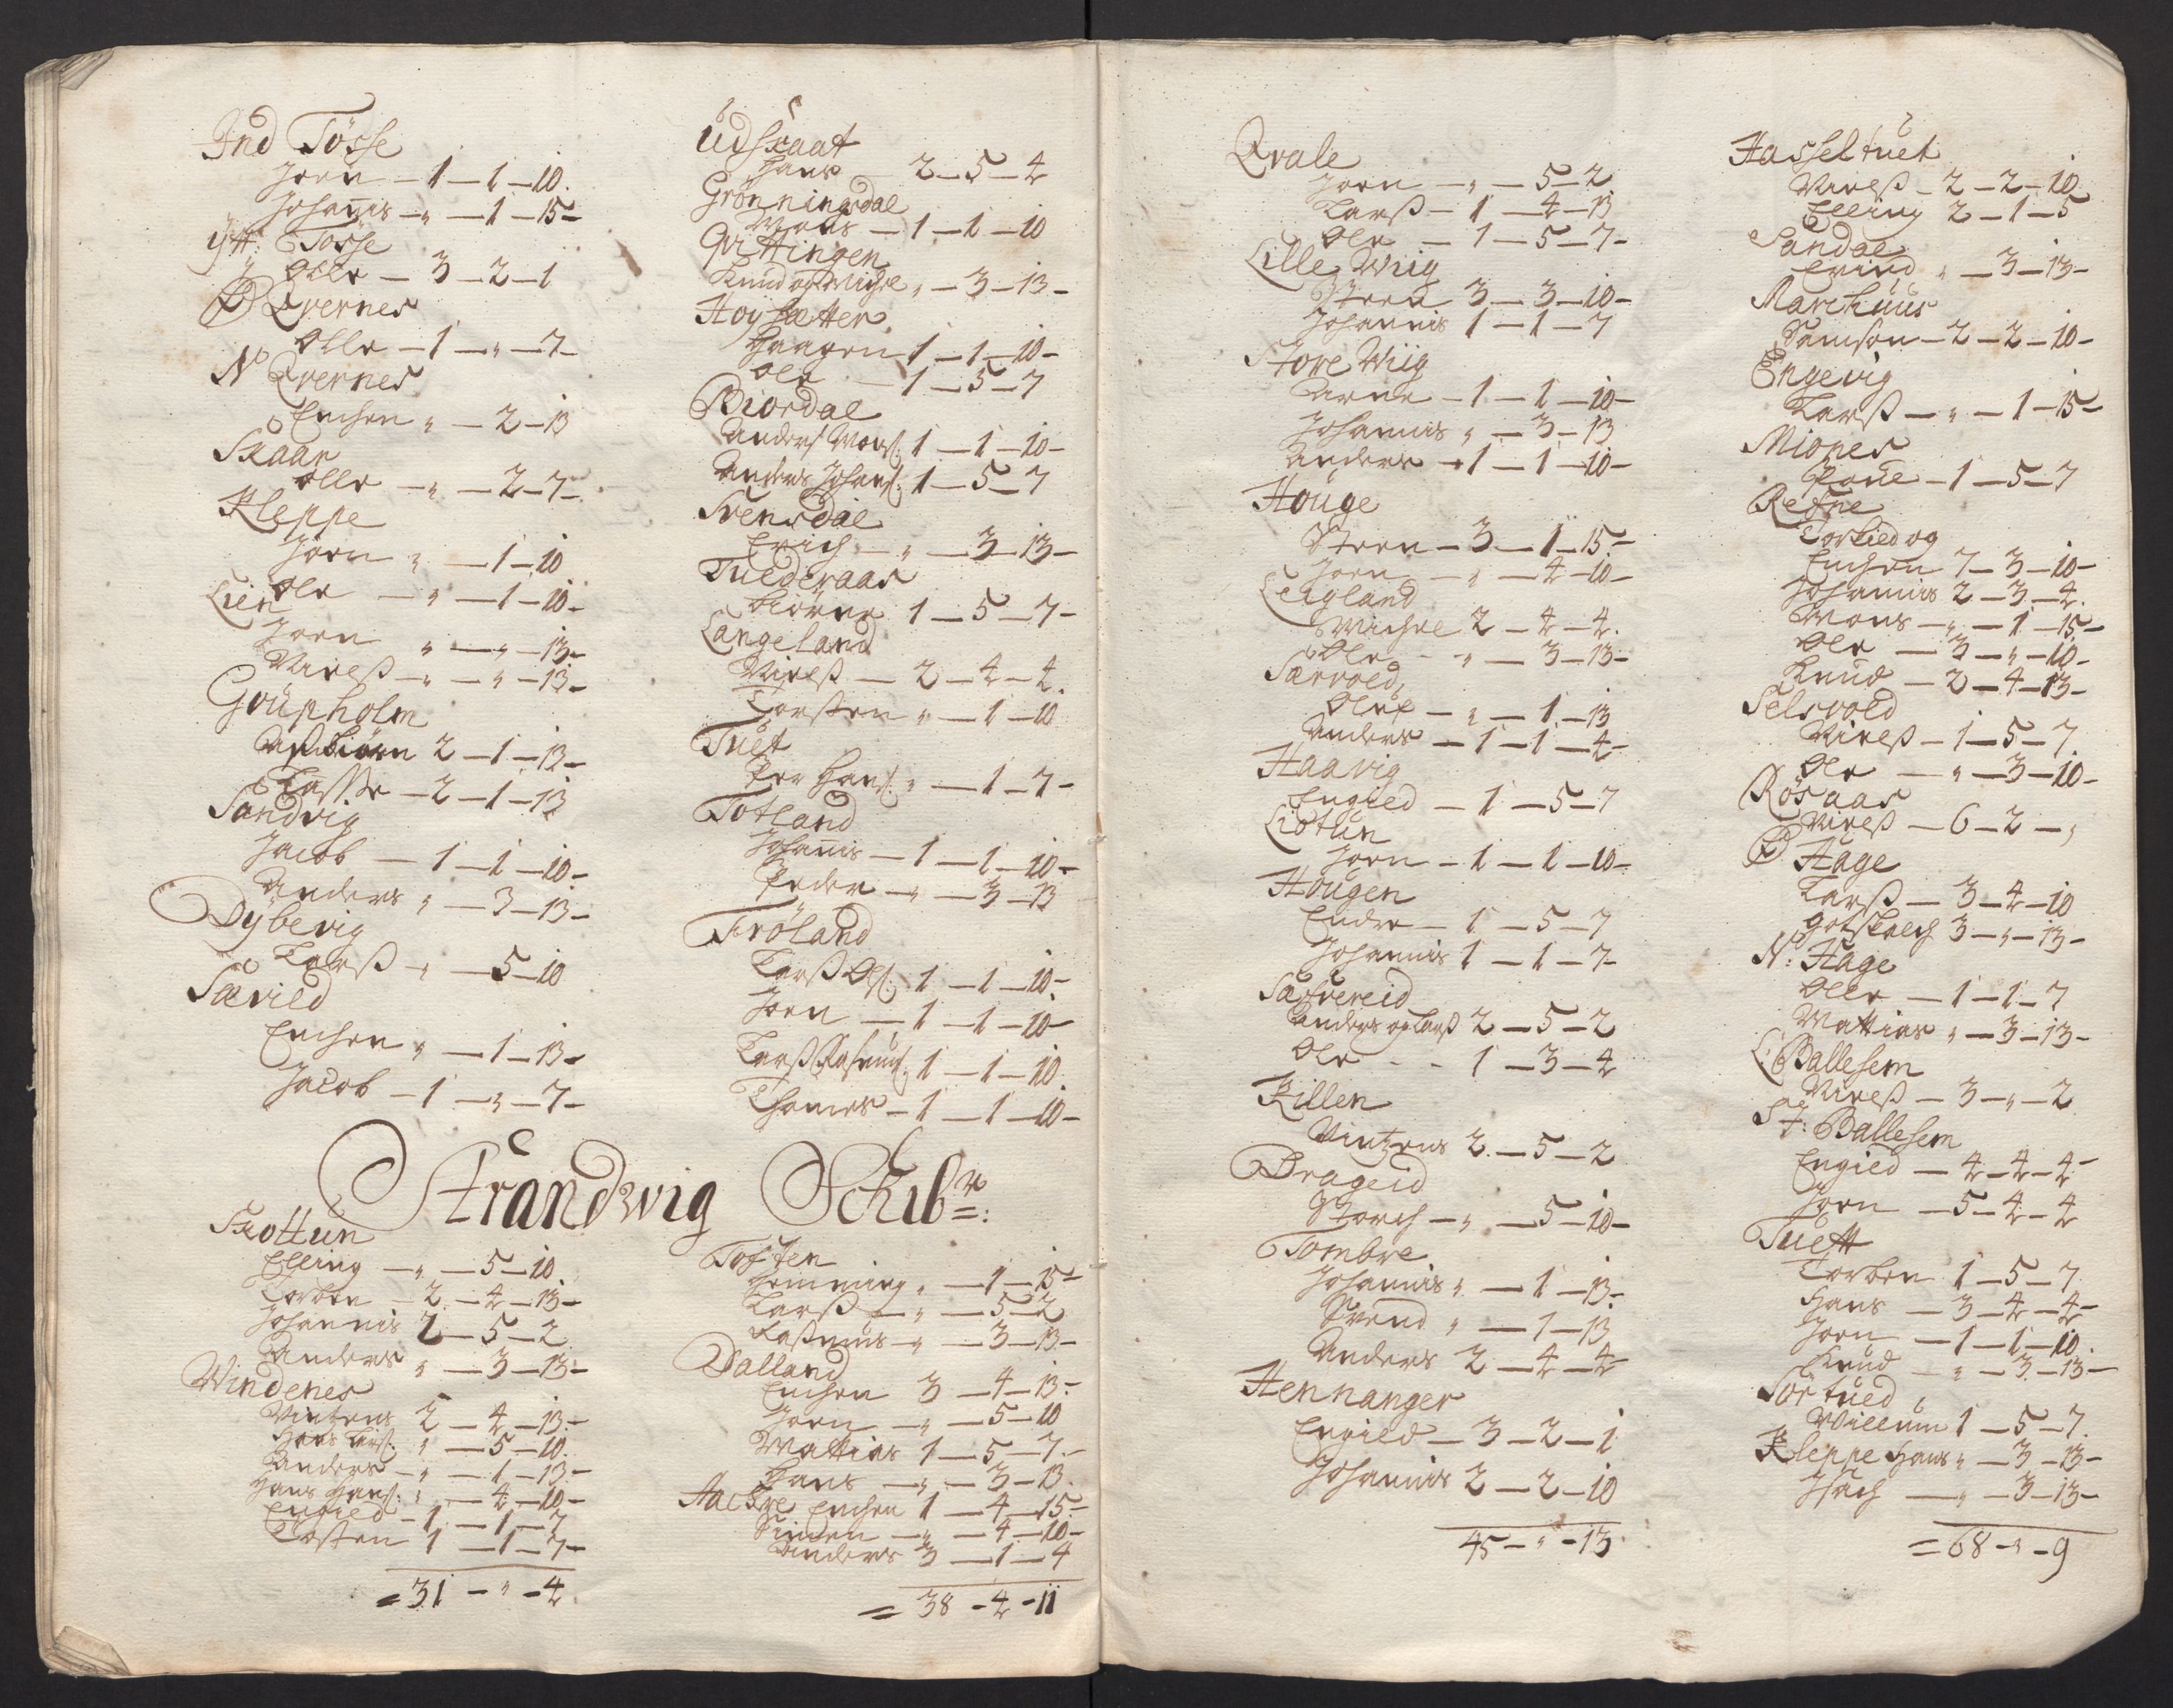 Ind Tösse
Joen — 1 — 1 — 10.
Johannis — " — 1 — 15 —
ÿtt: Tösse
Olle — 3 — 2 — 1
Ø Qvernes
Olle — 1 — " — 7 —
N: Qvernes
Enchen " — 2 — 13
Skaar
Olle — " — 2 — 7 —
Kleppe
Joen " — 1 — 10
Ole — " — 1 — 10 —
Lien
Joen " — " — 13 —
Nielß — " — " — 13 —
Goupholm
Asbiörn 2 — 1 — 13 —
Lasse — 2 — 1 — 13
Sandvig
Jacob — 1 — 1 — 10 —
Anders " — 3 — 13 —
Dÿbevig
Larß — " — 5 — 10
Sævild
Enchen " — 1 — 13 —
Jacob — 1 — " — 7 —
Udskaat
Hans 2 — 5 — 4
Grönningsdal
Mons — 1 — 1 — 10
Qvittingen
Knud og Michel " — 3 — 13 —
Hoysætter
Haagen 1 — 1 — 10 —
Ole — 1 — 5 — 7
Biordal
Anders Monß: 1 — 1 — 10 —
Anders Johanß: 1 — 5 — 7
Svensdal
Erich — " — 3 — 13 —
Tuederaas
Biörne 1 — 5 — 7 —
Langeland
Nielß — 2 — 4 — 4.
Torsten " — 1 — 10
Tuet
Per Hanß: " — 1 — 7 —
Totland
Johannis — 1 — 1 — 10 —
Peder — " — 3 — 13
Fröland
Larß Olß: 1 — 1 — 10 —
Joen — 1 — 1 — 10 —
Larß Rasmuß: 1 — 1 — 10
Thomes — 1 — 1 — 10 —
Strandwig Schibr:
Skottun
Elling — " — 5 — 10
Torben — 2 — 4 — 13 —
Johannis 2 — 5 — 2
Anders " — 3 — 13 —
Windenes
Vintzens 2 — 4 — 13 —
Hans Larß: " — 5 — 10.
Anders — " — 1 — 13 —
Hans Hanß: " — 4 — 10 —
Engield — 1 — 1 — 7
Tosten 1 — 1 — 7 —
= 31 — " — 4
Toften
Hemming " — 1 — 15 —
Larß — " — 5 — 2
Rasmus — " — 3 — 13 —
Dalland
Enchen 3 — 4 — 13 —
Joen — " — 5 — 10
Mattias 1 — 5 — 7 —
Hans — " — 3 — 13.
Aackre Enchen 1 — 4 — 15 —
Simen — " — 4 — 10 —
Anders 3 — 1 — 4
= 38 — 4 — 11
Qvale
Joen — " — 5 — 2
Larß — 1 — 4 — 13
Ole — 1 — 5 — 7 —
Lille Wiig
Steen 3 — 3 — 10 —
Johannis 1 — 1 — 7
Store Wiig
Arne — 1 — 1 — 10 —
Johannis " — 3 — 13
Anders — 1 — 1 — 10 —
Houge
Steen — 3 — 1 — 15 —
Joen — " — 4 — 10 —
Leigland
Michel 2 — 4 — 4.
Ole — " — 3 — 13 —
Særvold
Oluf — " — 1 — 13
Anders — 1 — 1 — 4 —
Haavig
Engield — 1 — 5 — 7
Liotun
Joen — 1 — 1 — 10 —
Hougen
Endre — 1 — 5 — 7
Johannis 1 — 1 — 7 —
Sæfvereid
Anders og Larß 2 — 5 — 2
Ole - - 1 — 3 — 4
Killen
Vintzens 2. — 5 — 2
Drageid
Storch — " — 5 — 10 —
Tombre
Johannis " — 1 — 13 —
Svend " — 1 — 13
Anders 2 — 4 — 4 —
Hennanger
Engield — 3 — 2 — 1
Johannis 2 — 2 — 10
45 — " — 13
Hasseltuet
Nielß — 2 — 2 — 10
Elling 2 — 1 — 5
Sandal
Erind " — 3 — 13 —
Marchuus
Samson — 2 — 2 — 10 —
Engevig
Larß — " — 1 — 15 —
Miones
Poue — 1 — 5 — 7
Refne
Torkield og
Enchen 7 — 3 — 10 —
Johannis 2 — 3 — 4.
Mons — " — 1 — 15 —
Ole — 3 — " — 10 —
Knud — 2 — 4 — 13 —
Selsvold
Nielß — 1 — 5 — 7
Ole — " — 3 — 10 —
Rösaas
Nielß — 6 — 2 — "
Ø Hage
Larß — 3 — 4 — 10
Gotskalch 3 — " — 13 —
N: Hage
Olle — 1 — 1 — 7
Mattias " — 3 — 13 —
L: Ballesem
Nielß — 3 — " — 2
St: Ballesem
Engield — 4 — 4 — 4 —
Joen — 5 — 4 — 4
Tuett
Torben 1 — 5 — 7
Hans — 3 — 4 — 4 —
Joen — 1 — 1 — 10.
Knud " — 3 — 13 —
Sörtued
Willum 1 — 5 — 7.
Kleppe Hans " — 3 — 13 —
Isach — " — 3 — 13 —
= 68 — " — 9